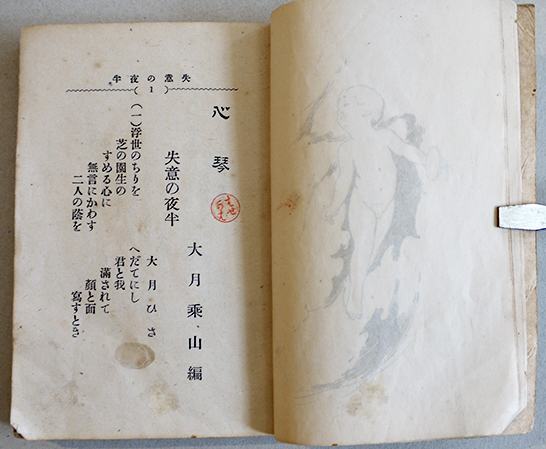 失意の夜半
(1)
心琴
大月乘山編
失意の夜半
大月ひさ
(一)浮世のちりをへだてにし
芝の園生の君と我
すめる心に滿されて
無言にかわす顏と面
二人の蔭を寫すとき